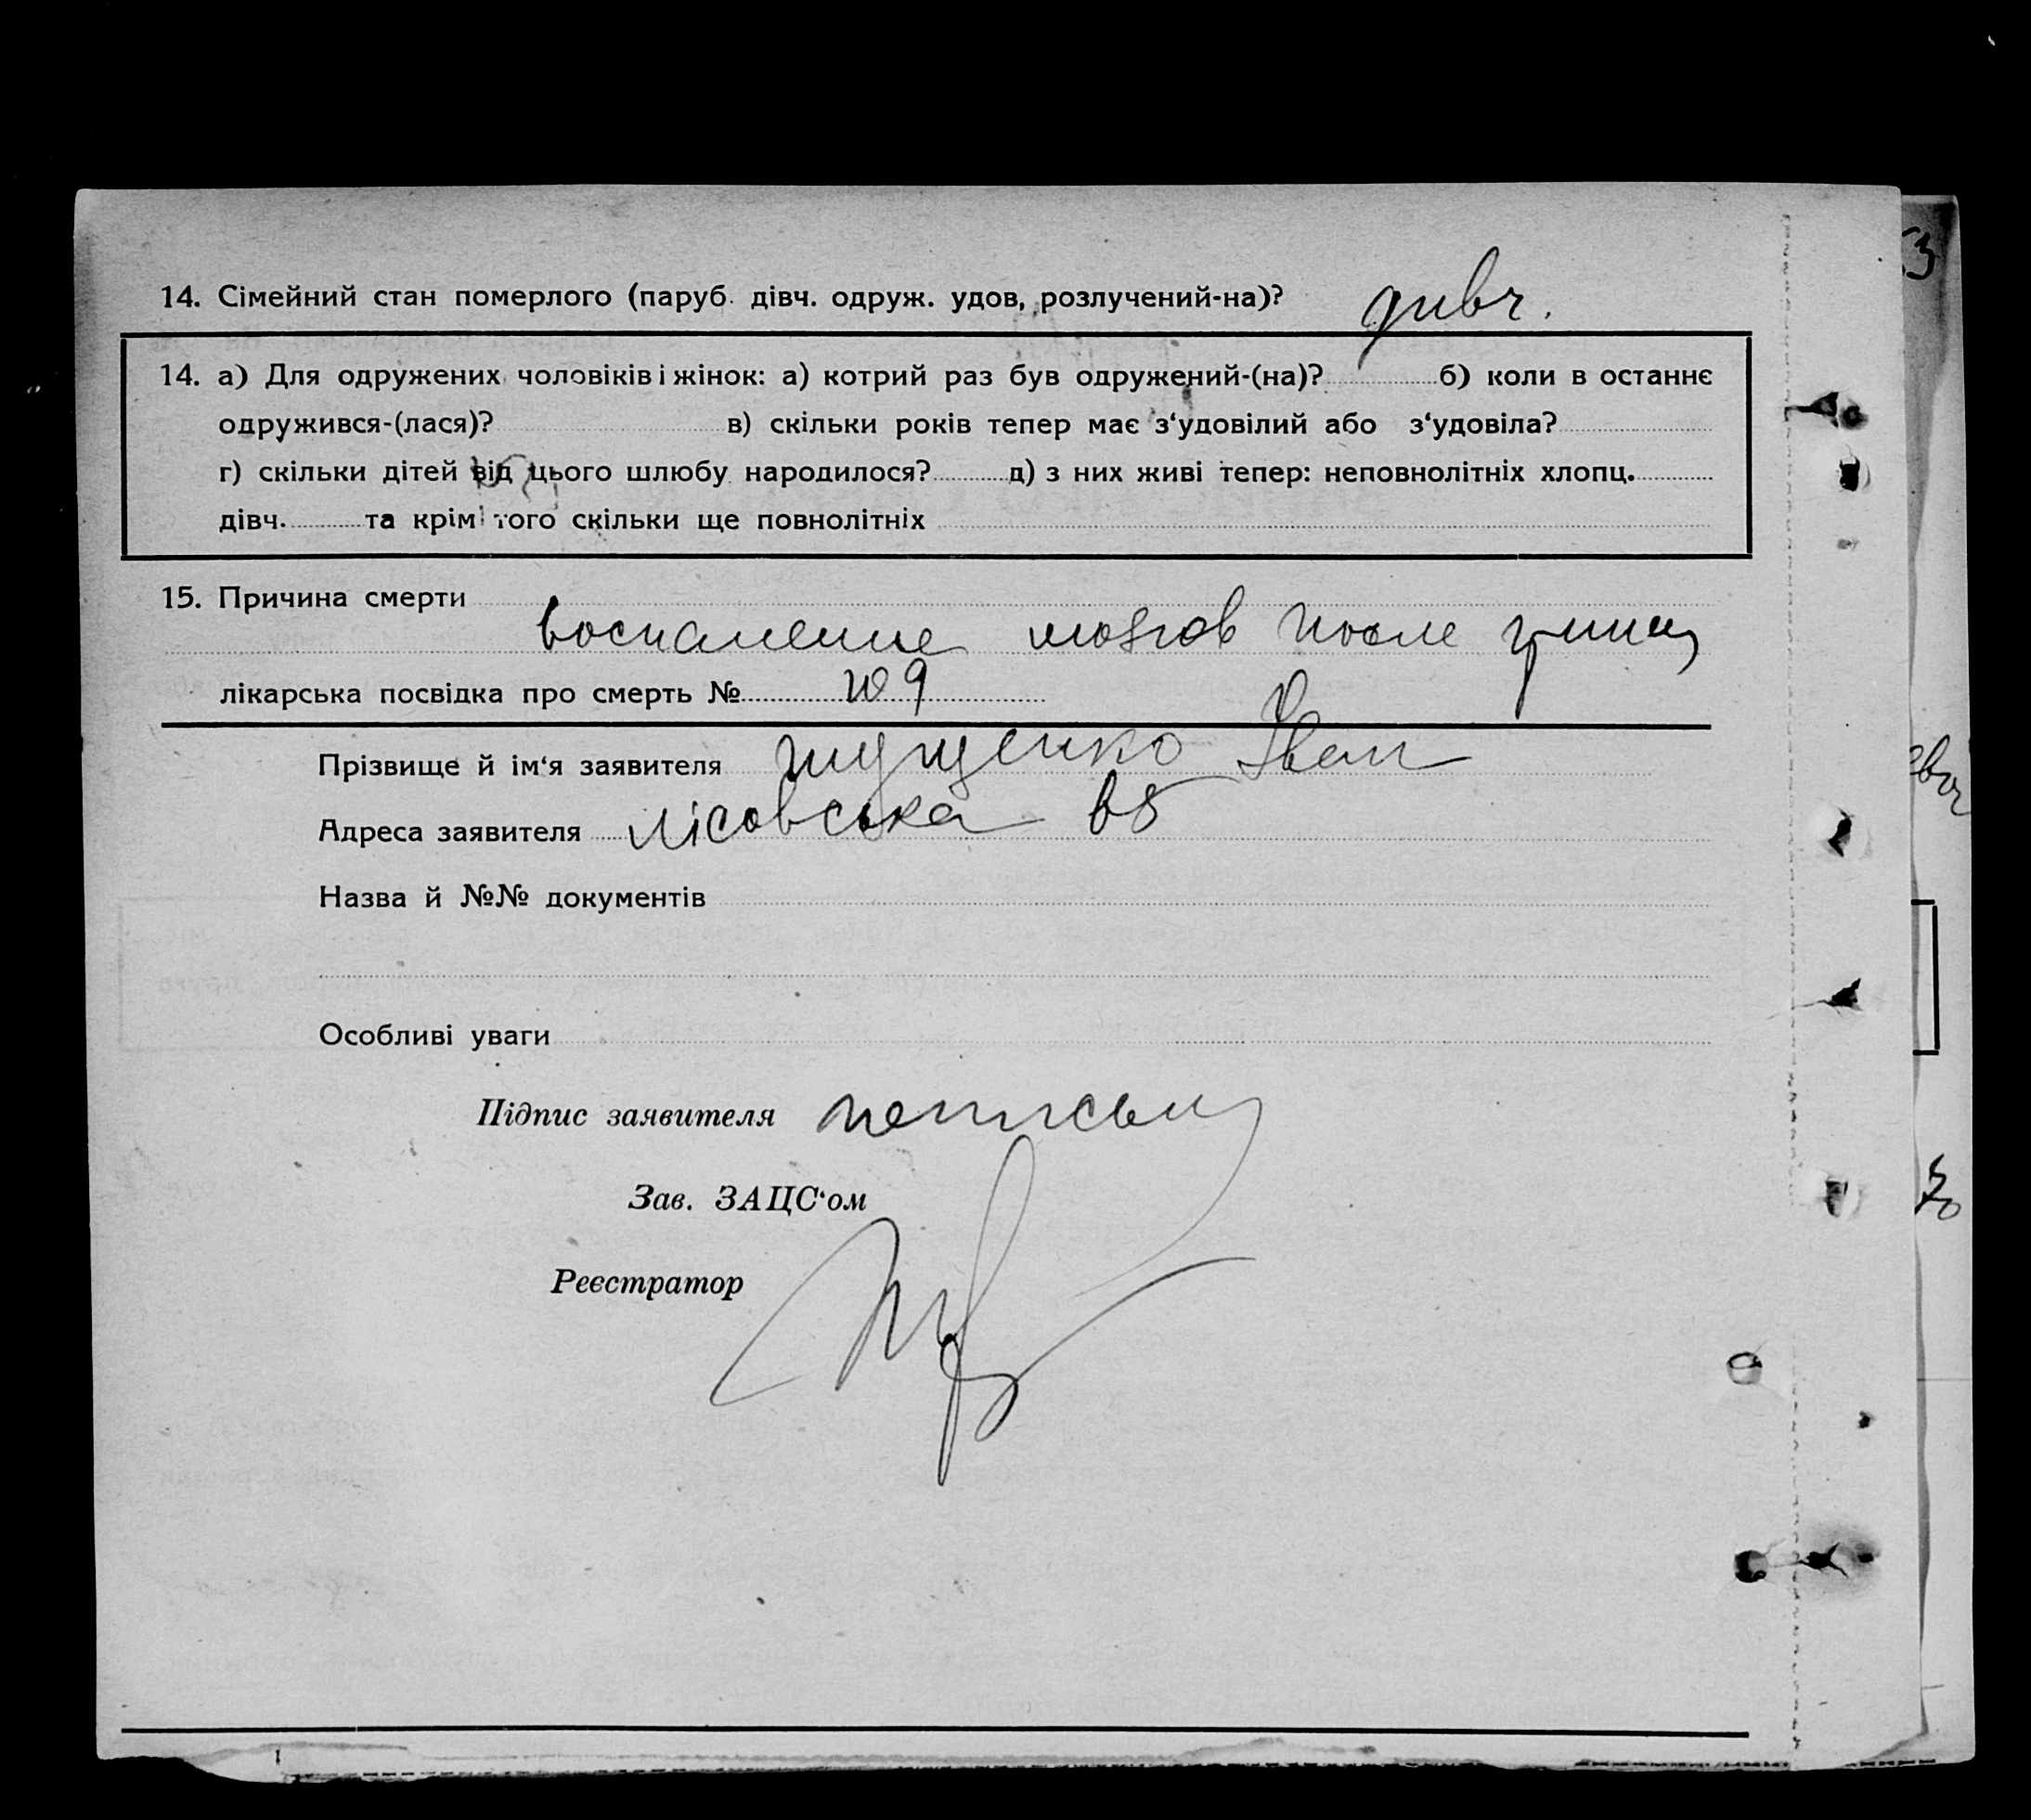 14. Сімейний стан померлого (паруб. дівч. одруж. удов, розлучений-на)? дивч.
14. а) Для одружених чоловіків і жінок: а) котрий раз був одружений-(на)? б) коли в останнє
одружився-(лася)? в) скільки років тепер має з‘удовілий або з‘удовіла?
г) скільки дітей від цього шлюбу народилося? д) з них живі тепер: неповнолітніх хлопц.
дівч. та крім того скільки ще повнолітніх
15. Причина смерти
воспаление мозгов после
лікарська посвідка про смерть № 9
Прізвище й ім‘я заявителя Іван
Адреса заявителя Лісовська
Назва й №№ документів
Особливі уваги
Підпис заявителя
Зав. ЗАЦС‘ом
Реєстратор